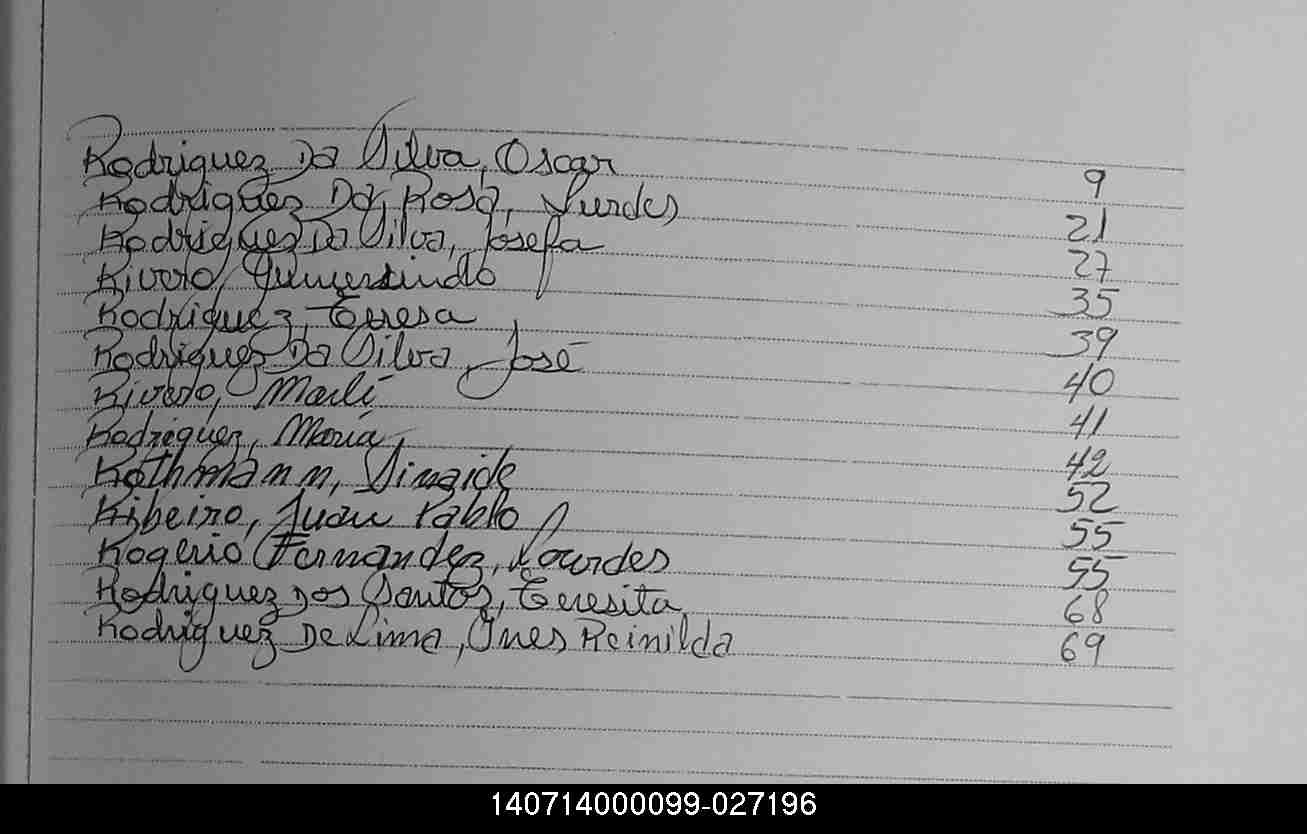 Rodriguez Da Silva, Oscar 9
Rodriguez Da Rosa, Lurdes 21
Rodriguez Da Silva, Josefa 27
Rivero, Gumersindo 35
Rodriguez, Teresa 39
Rodriguez Da Silva, José 40
Rivero, Marlí 41
Rodriguez, María 42
Rothmann, 52
Ribeiro, Juan Pablo 55
Rogerio Fernandez, Lourdes 55
Rodriguez Dos Santos, Teresita 68
Rodriguez De Lima, Ines Reinilda 69
140714000099-027196